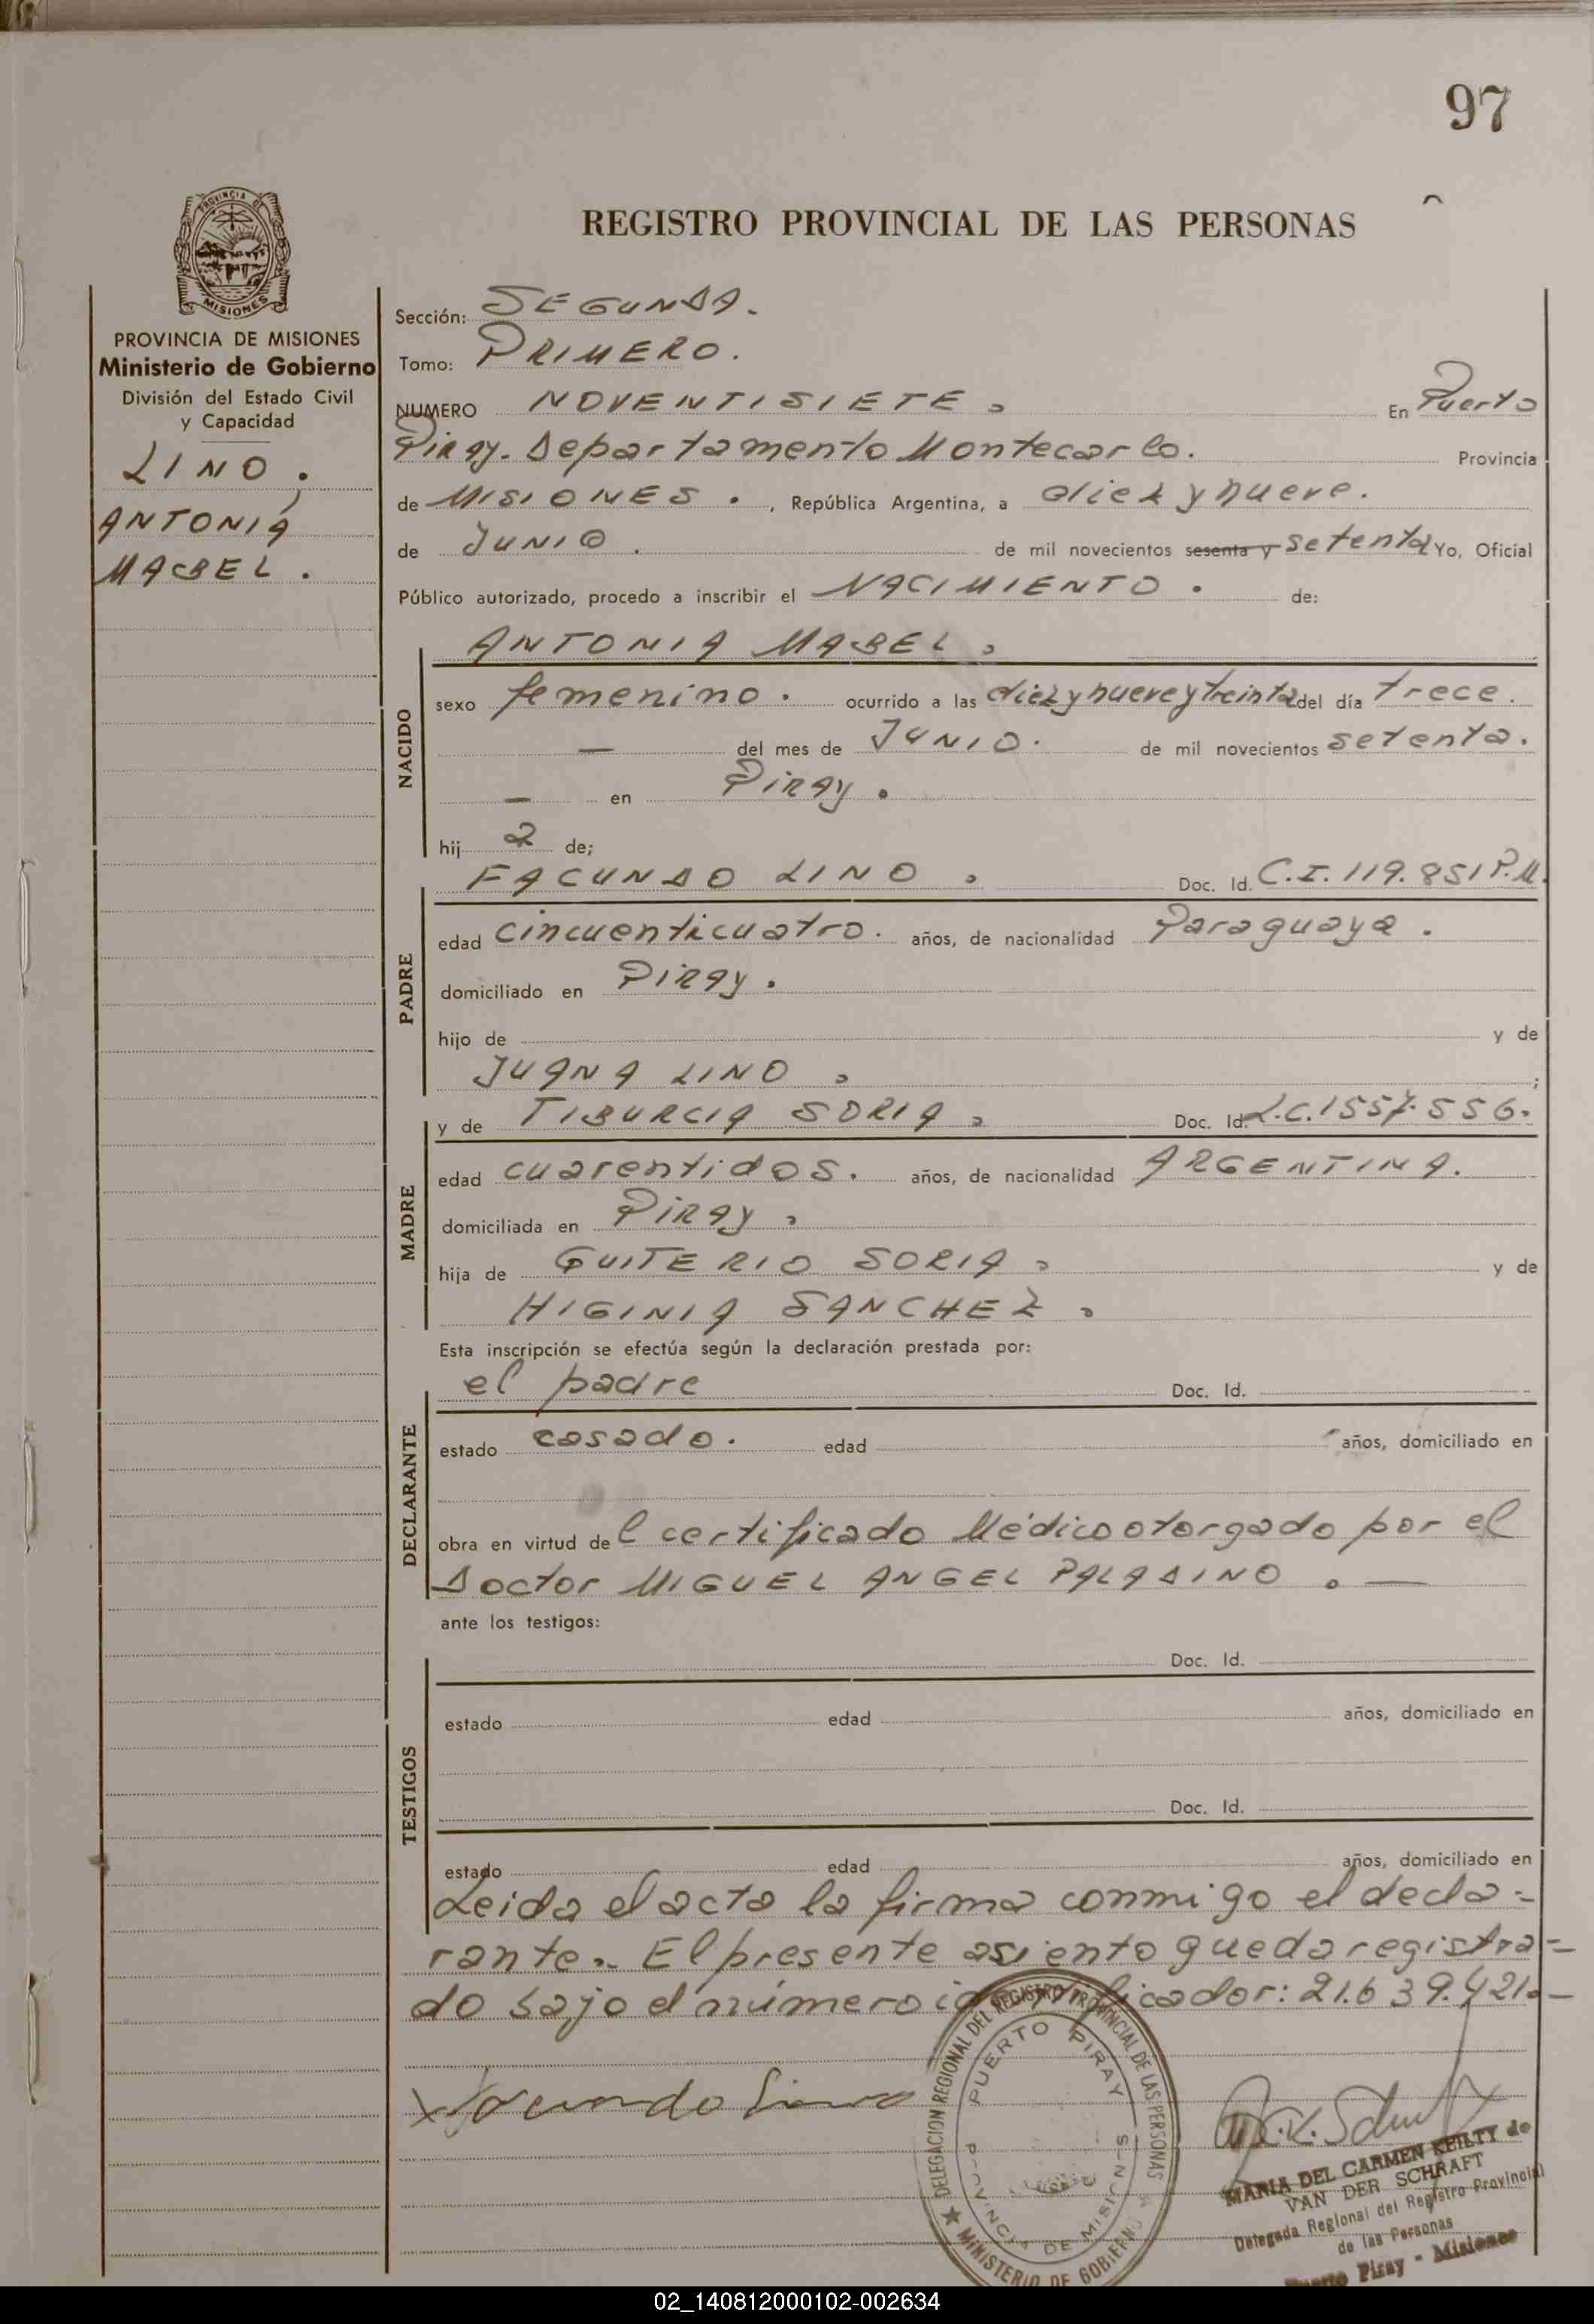 97
REGISTRO PROVINCIAL DE LAS PERSONAS
PROVINCIA DE
MISIONES
PROVINCIA DE MISIONES
Ministerio de Gobierno
División del Estado Civil
y Capacidad
LINO.
ANTONIA
MABEL.
Sección: SEGUNDA.
Tomo: PRIMERO.
NUMERO NOVENTISIETE. En Puerto
Piray. Departamento Montecarlo. Provincia
de MISIONES. , República Argentina, a diez y nueve.
de JUNIO. de mil novecientos sesenta y setenta Yo, Oficial
Público autorizado, procedo a inscribir el NACIMIENTO. de:
NACIDO
ANTONIA MABEL.
sexo femenino. ocurrido a las diez y nueve y treinta del día trece.
— del mes de JUNIO. de mil novecientos setenta.
— en Piray.
hij a de;
PADRE
FACUNDO LINO. Doc. Id. C.I. 119.851 P.M.
edad cincuenticuatro. años, de nacionalidad Paraguaya.
domiciliado en Piray.
hijo de y de
JUANA LINO. ;
MADRE
y de TIBURCIA SORIA. Doc. Id. L.C. 1557.556.
edad cuarentidos. años, de nacionalidad ARGENTINA.
domiciliada en Piray.
hija de QUITERIO SORIA. y de
HIGINIA SANCHEZ.
Esta inscripción se efectúa según la declaración prestada por:
DECLARANTE
el padre Doc. Id.
estado casado. edad años, domiciliado en
obra en virtud de l certificado Médico otorgado por el
Doctor MIGUEL ANGEL PALADINO. —
ante los testigos:
TESTIGOS
Doc. Id.
estado edad años, domiciliado en
Doc. Id.
estado edad años, domiciliado en
Leida el acta la firma conmigo el decla=
rante. El presente asiento queda registra=
do bajo el número identificador: 21.639.421.—
Facundo Lino
DELEGACION REGIONAL DEL REGISTRO PROVINCIAL DE LAS PERSONAS
MINISTERIO DE GOBIERNO
PUERTO PIRAY
PROVINCIA DE MISIONES
MARIA DEL CARMEN KEILTY de
VAN DER SCHRAFT
Delegada Regional del Registro Provincial
de las Personas
Puerto Piray - Misiones
02_140812000102-002634